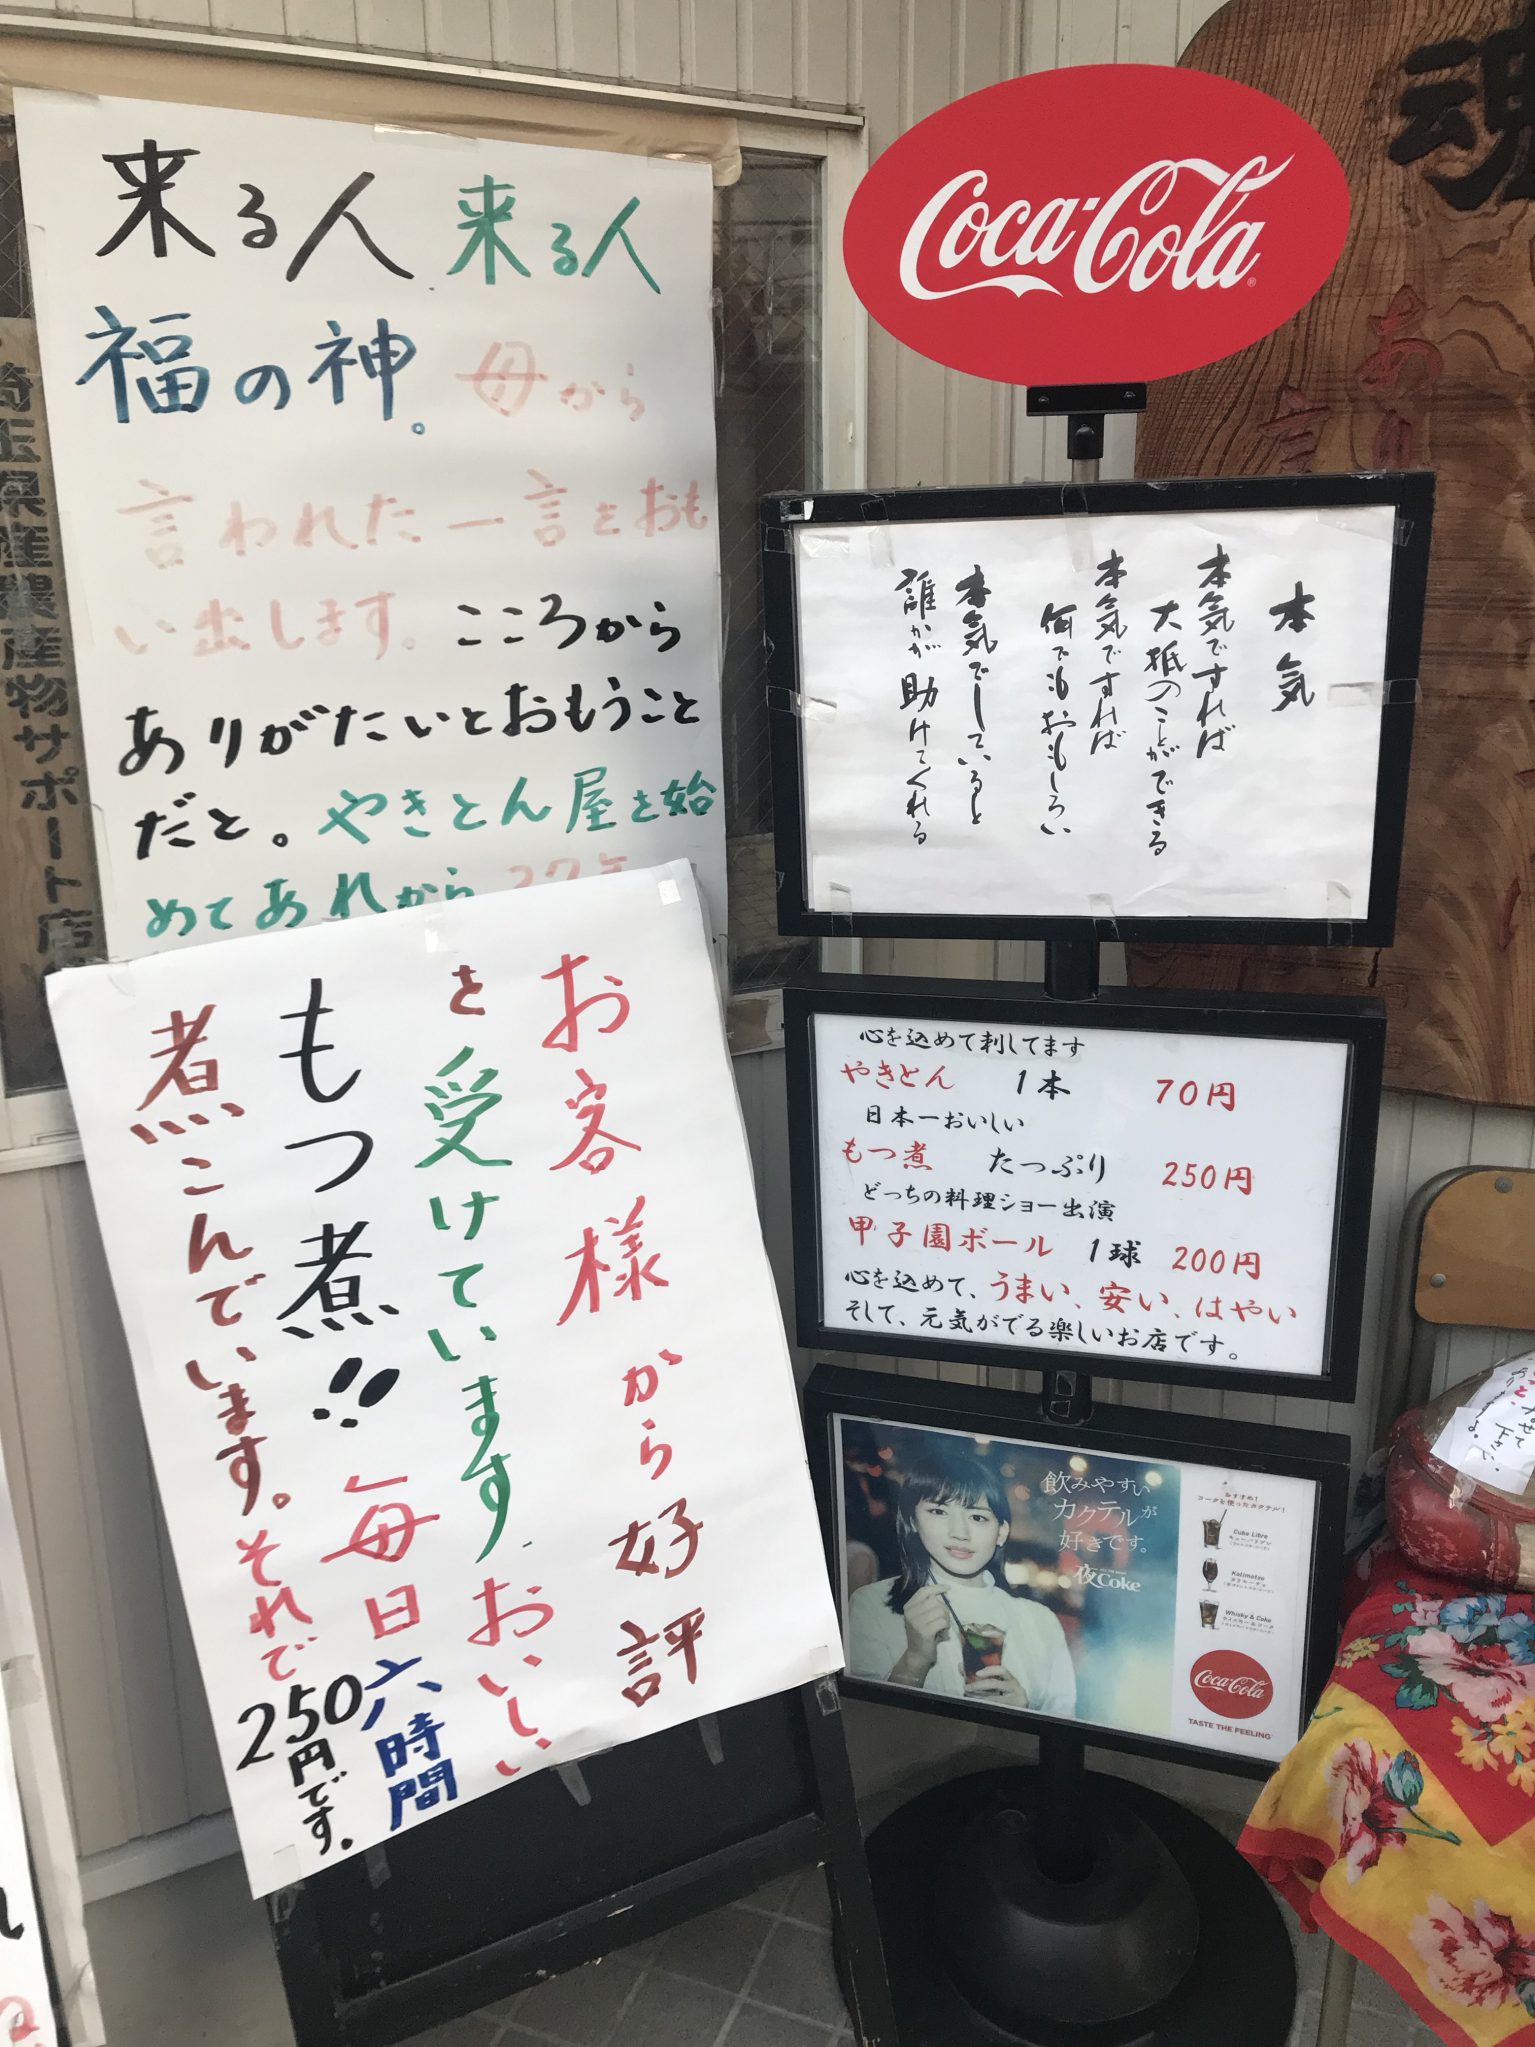 来る人来る人
福の神。母から
言われた一言をおも
い出します。こころから
ありがたいとおもうこと
だと。やきとん屋を始
めてあれから27年
お客様から好評
を受けていますおいしい
もつ煮!! 毎日六時間
煮こんでいます。それで
250円です。
埼玉県産農産物サポート店
Coca-Cola
魂
本気
本気ですれば
大抵のことができる
本気ですれば
何でもおもしろい
本気でしていると
誰かが助けてくれる
心を込めて刺してます
やきとん 1本 70円
日本一おいしい
もつ煮 たっぷり 250円
どっちの料理ショー出演
甲子園ボール 1球 200円
心を込めて、うまい、安い、はやい
そして、元気がでる楽しいお店です。
飲みやすい
カクテルが
好きです。
夜Coke
おすすめ!
コークを使ったカクテル!
Cuba Libre
キューバリブレ
Kalimotxo
カリモーチョ
Whisky & Coke
ウイスキー&コーク
Coca-Cola
TASTE THE FEELING